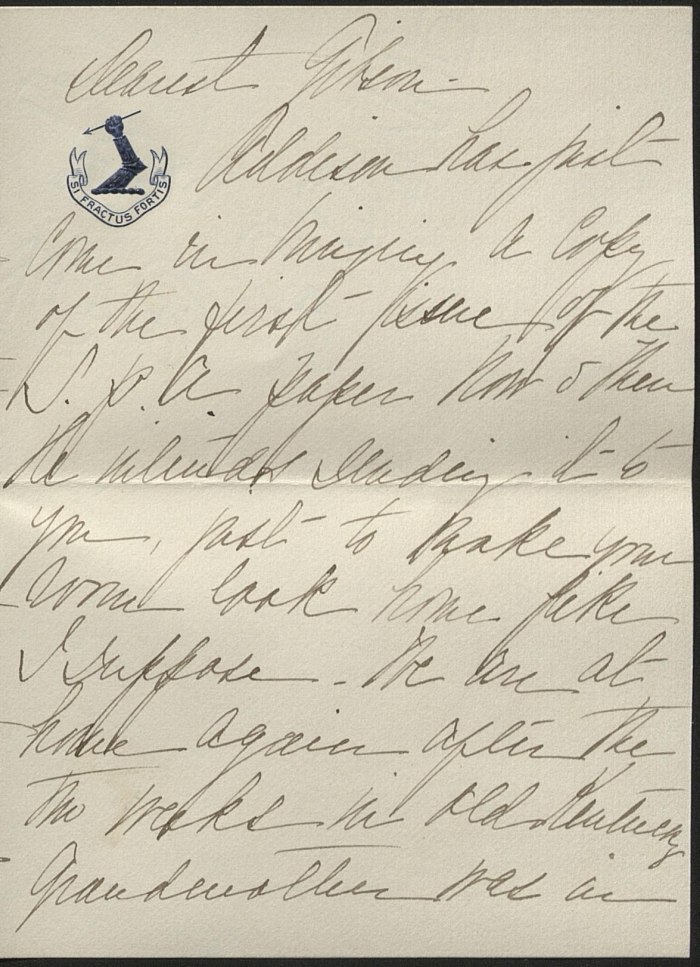 Dearest Gibson -
Addison has just
SI FRACTUS FORTIS
come in bringing a copy
of the first issue of the
S. P. A. paper now & then
he intends sending it to
you, just to make your
room look home like
I suppose - We are at
home again after the
two weeks in Old Kentucky
Grandmother was in